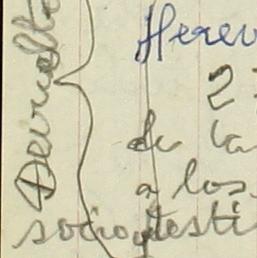 Devuelto
Herev
2
de la
a los
socio y testi